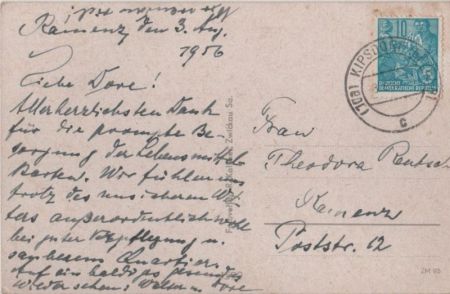 Kamenz, den 3. Aug.
1956
Liebe Dore!
Allerherzlichsten Dank
für die prompte Be-
sorgung der Lebensmittel-
karten. Wir fühlen uns
trotz des unsicheren Wet-
ters außerordentlich wohl
bei guter Verpflegung u.
sauberem Quartier.
Auf ein baldiges gesundes
Wiedersehen!
Frau
Theodora Rentsch
Kamenz
Poststr. 12
10
5
DEUTSCHE
DEMOKRATISCHE REPUBLIK
(10a) KIPSDORF
c
Zwickau Sa.